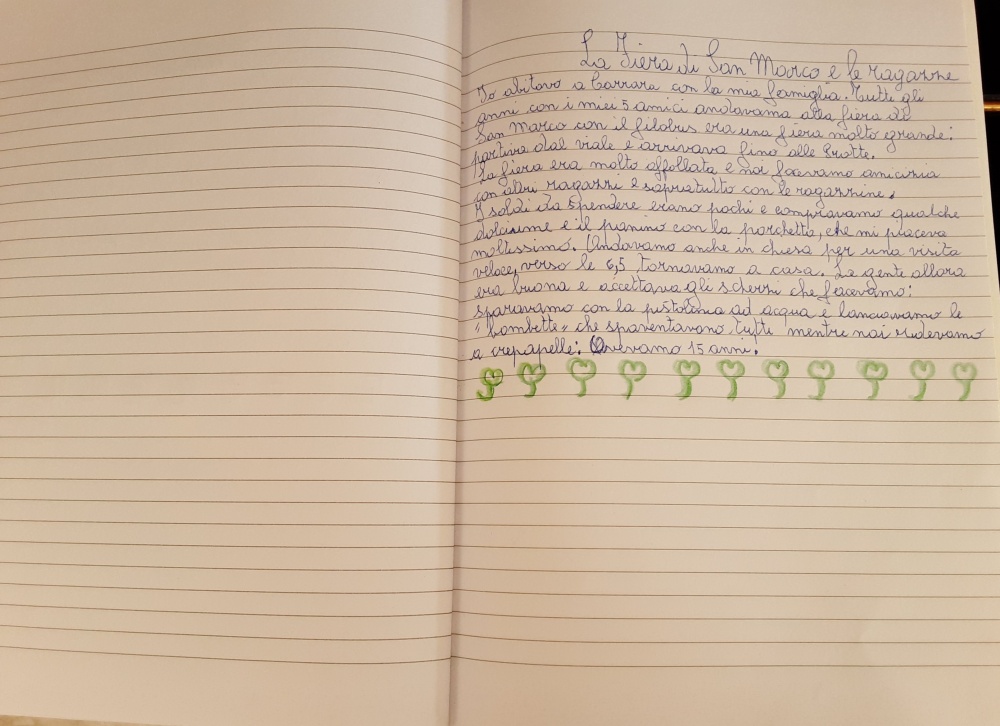 La Fiera di San Marco e le ragazze
Io abitavo a Carrara con la mia famiglia. Tutti gli
anni con i miei 5 amici andavamo alla fiera di
San Marco con il filobus era una fiera molto grande:
partiva dal viale e arrivava fino alle Grotte.
La fiera era molto affollata e noi facevamo amicizia
con altri ragazzi e sopratutto con le ragazzine.
I soldi da spendere erano pochi e compravamo qualche
dolciume e il panino con la porchetta, che mi piaceva
moltissimo. Andavamo anche in chiesa per una visita
veloce, verso le 6,5 tornavamo a casa. La gente allora
era buona e accettava gli scherzi che facevamo:
sparavamo con la pistolina ad acqua e lanciavamo le
"bombette" che spaventavano tutti mentre noi ridevamo
a crepapelle. Avevamo 15 anni.